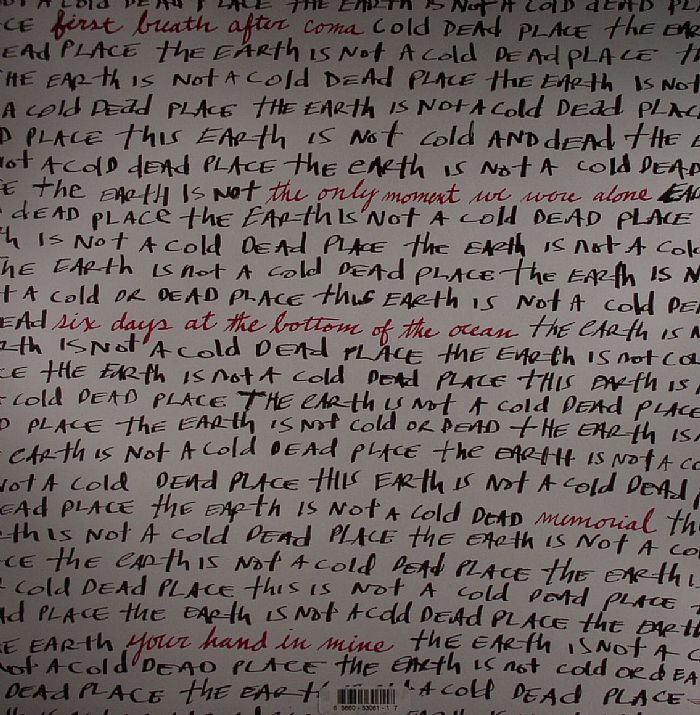 A COLD DEAD PLACE THE EARTH IS NOT A COLD dEAD PL
CE first breath after coma COLD DEAD PLACE the EAR
EAD PLACE THE EARTH IS NOT A COLD DEAD PLACE
HE EARTH IS NOT A COLD DEAD PLACE THE EARTH IS NOT
A COLD DEAD PLACE THE EARTH IS NOT A COLD DEAD PLAC
D PLACE this EARTH IS NOT COLD AND dead THE E
NOT A COLD dEAD PLACE the EARTH IS NOT A COLD DEAD
E the EARTH IS NOT the only moment we were alone EAR
dEAD PLACE the EARTH IS NOT A COLD DEAD PLACE
h IS NOT A COLD DEAD PLACE the EARTH IS NOT A COLD
THE EARTH IS NOT A COLD DEAD PLACE the EARTH IS N
t A COLD OR DEAD PLACE this EARTH IS NOT A COLD DE
EAD six days at the bottom of the ocean the EARTH IS N
RTH IS NOT A COLD DEAD PLACE the EARTH IS not CO
CE the EARTH IS NOT A COLD DEAD PLACE THIS EARTH IS
COLD DEAD PLACE THE EARTH IS NOT A COLD DEAD PLACE
D PLACE THE EARTH IS NOT COLD OR DEAD tHE EARTH IS
EARTH IS NOT A COLD DEAD PLACE the EARTH IS NOT A CO
NOT A COLD DEAD PLACE tHIS EARTH IS NOT A COLD DEAD
EAD PLACE the EARTH IS NOT A COLD DEAD memorial th
RTH IS NOT A COLD DEAD PLACE the EARTH IS NOT A CO
CE the EARTH IS NOT A COLD DEAD PLACE the EARTH I
COLD DEAD PLACE this IS NOT A COLD DEAD PLACE
AD PLACE the EARTH IS NOT A COLD DEAD PLACE the EARTH
E EARTH your hand in mine the EARTH IS NOT A C
NOT A COLD DEAD PLACE the EARTH IS not COLD OR dEA
DEAD PLACE the EARTH A COLD DEAD PLACE
6 5660 - 53061 - 1 7